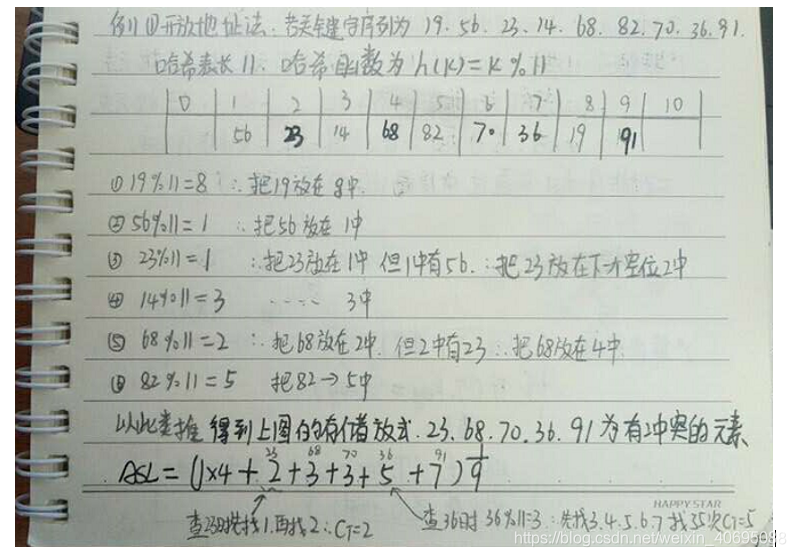 例1 ①开放地址法:若关键字序列为 19. 56. 23. 14. 68. 82. 70. 36. 91.
哈希表长11. 哈希函数为 h(K)=K%11
0 1 2 3 4 5 6 7 8 9 10
56 23 14 68 82 70 36 19 91
① 19%11=8 ∴把19放在8中.
② 56%11=1 ∴把56放在1中
③ 23%11=1 ∴把23放在1中 但1中有56. ∴把23放在下一个空位2中
④ 14%11=3 ····· 3中
⑤ 68%11=2 ∴把68放在2中. 但2中有23 ∴把68放在4中.
⑥ 82%11=5 把82→5中
以此类推 得到上图的存储放式. 23. 68. 70. 36. 91 为有冲突的元素
23 68 70 36 91
ASL=(1×4+2+3+3+5+7)1/9
查23时先找1.再找2∴Ci=2
查36时 36%11=3 ∴先找3.4.5.6.7 找5次Ci=5
HAPPY STAR
https://blog.csdn.net/weixin_40695088